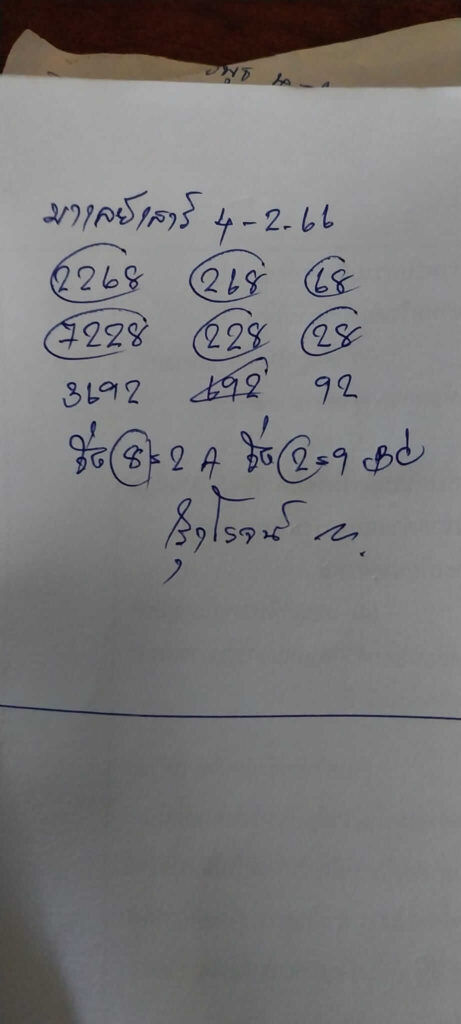 มาเลย์เสาร์ 4-2-66
2268 268 68
7228 228 28
3692 692 92
8=2 A 2=9